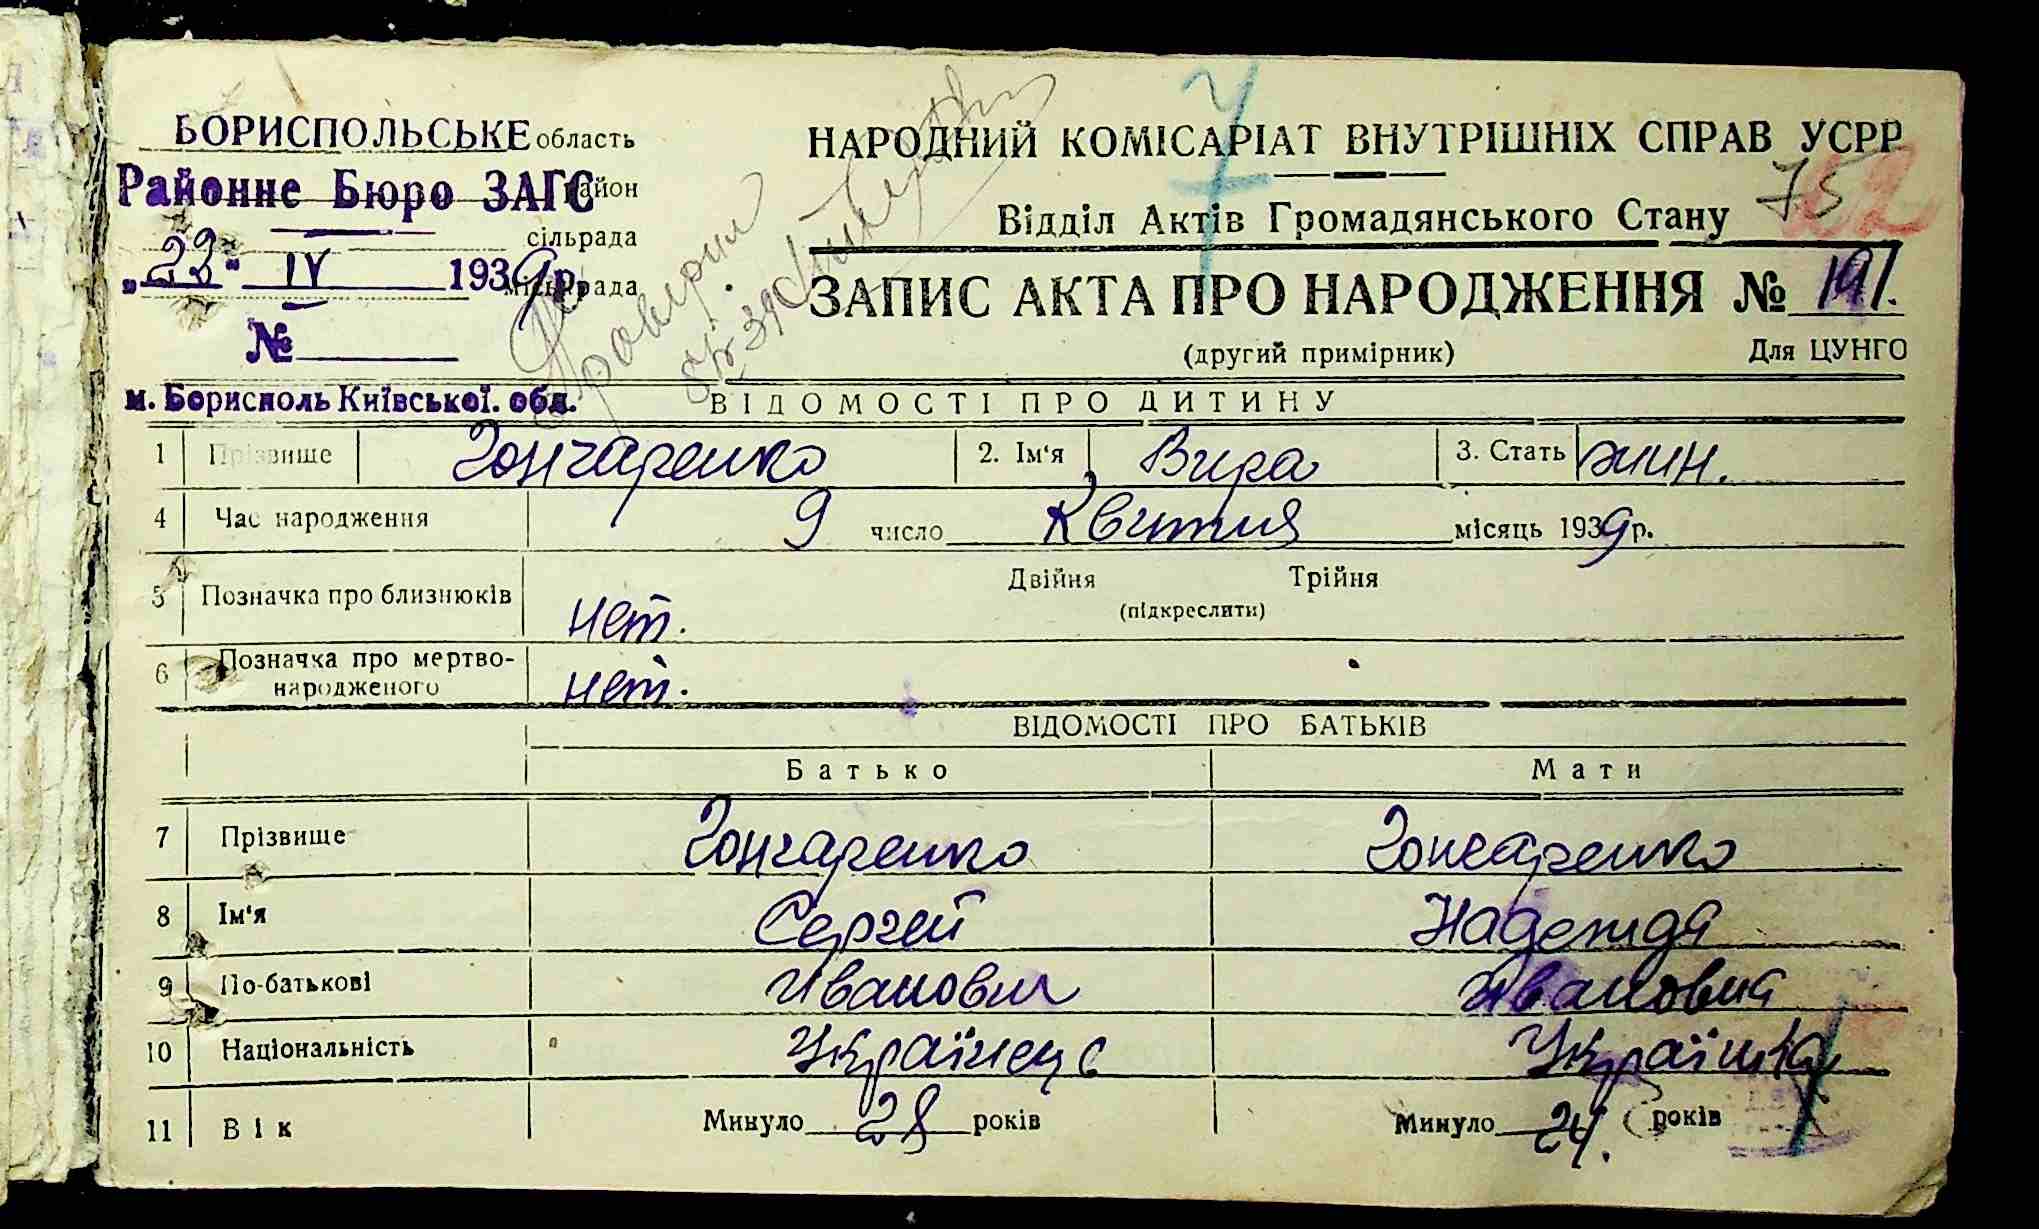 БОРИСПОЛЬСЬКЕ область
Районне Бюро ЗАГС район
сільрада
„23" IV 1939р. міськрада
№
м. Бориспіль Київської. обл.
Проверил
7
НАРОДНИЙ КОМІСАРІАТ ВНУТРІШНІХ СПРАВ УСРР
75
Відділ Актів Громадянського Стану
ЗАПИС АКТА ПРО НАРОДЖЕННЯ № 191.
(другий примірник) Для ЦУНГО
ВІДОМОСТІ ПРО ДИТИНУ
1 Прізвище Гончаренко 2. Ім'я Вира 3. Стать жин.
4 Час народження 9 число Квитня місяць 1939р.
5 Позначка про близнюків нет. Двійня Трійня
(підкреслити)
6 Позначка про мертво-
народженого нет.
ВІДОМОСТІ ПРО БАТЬКІВ
Батько Мати
7 Прізвище Гончаренко Гончаренко
8 Ім'я Сергей Надежда
9 По-батькові Иванович Ивановна
10 Національність Українець Українка
11 Вік Минуло 28 років Минуло 24. років